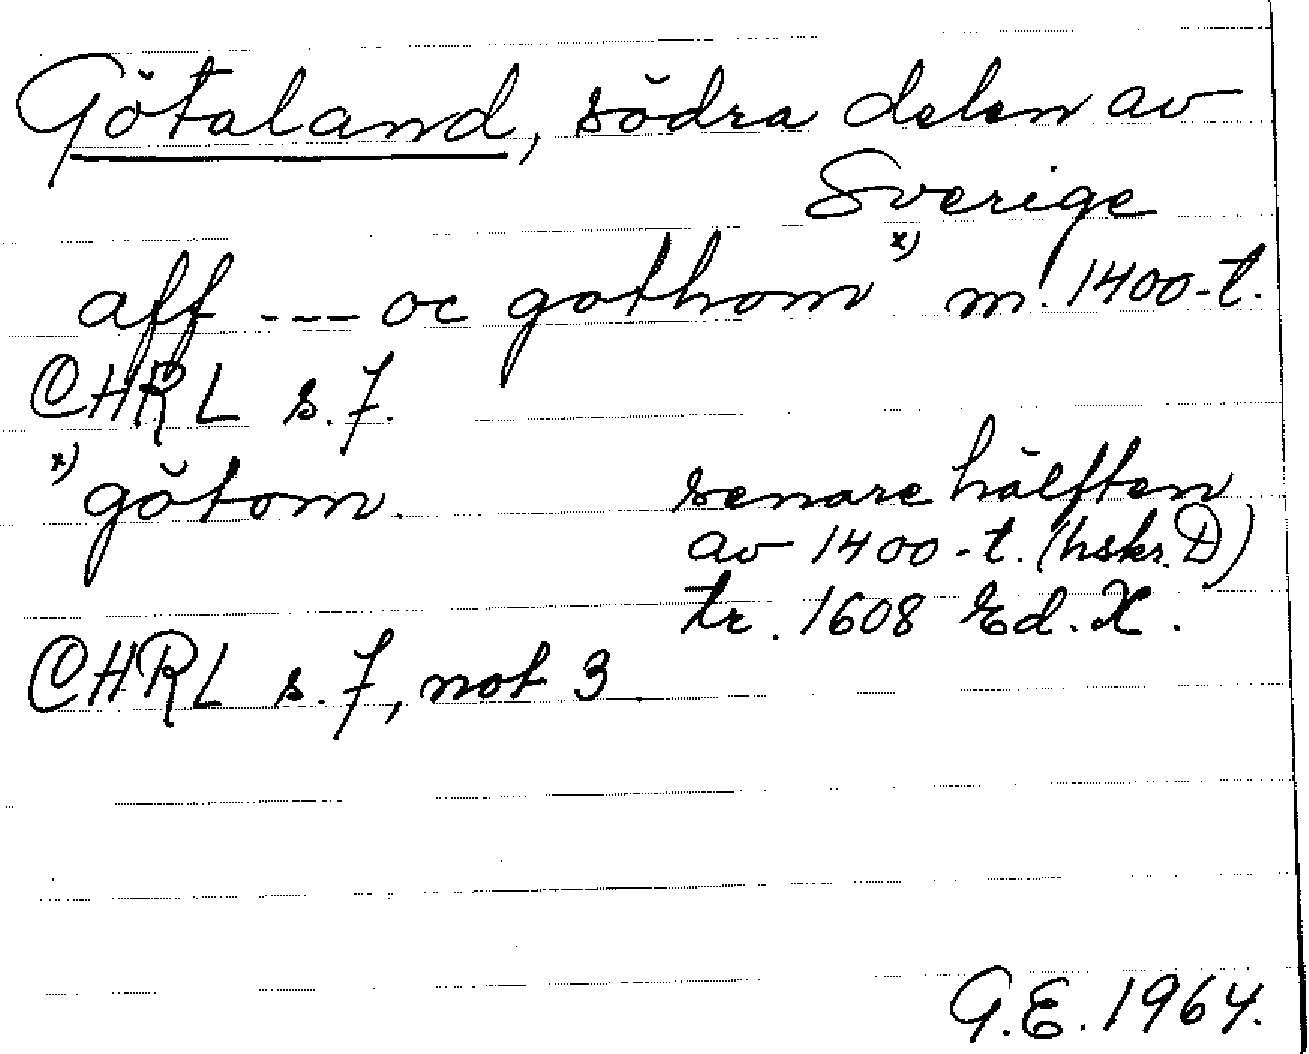 Götaland, södra delen av
Sverige
aff --- oc gothom x) m. 1400-t.
CHRL s. 7.
x) götom. senare hälften
av 1400-t. (hskr. D)
tr. 1608 Ed. X.
CHRL s. 7, not 3.
G.E. 1964.